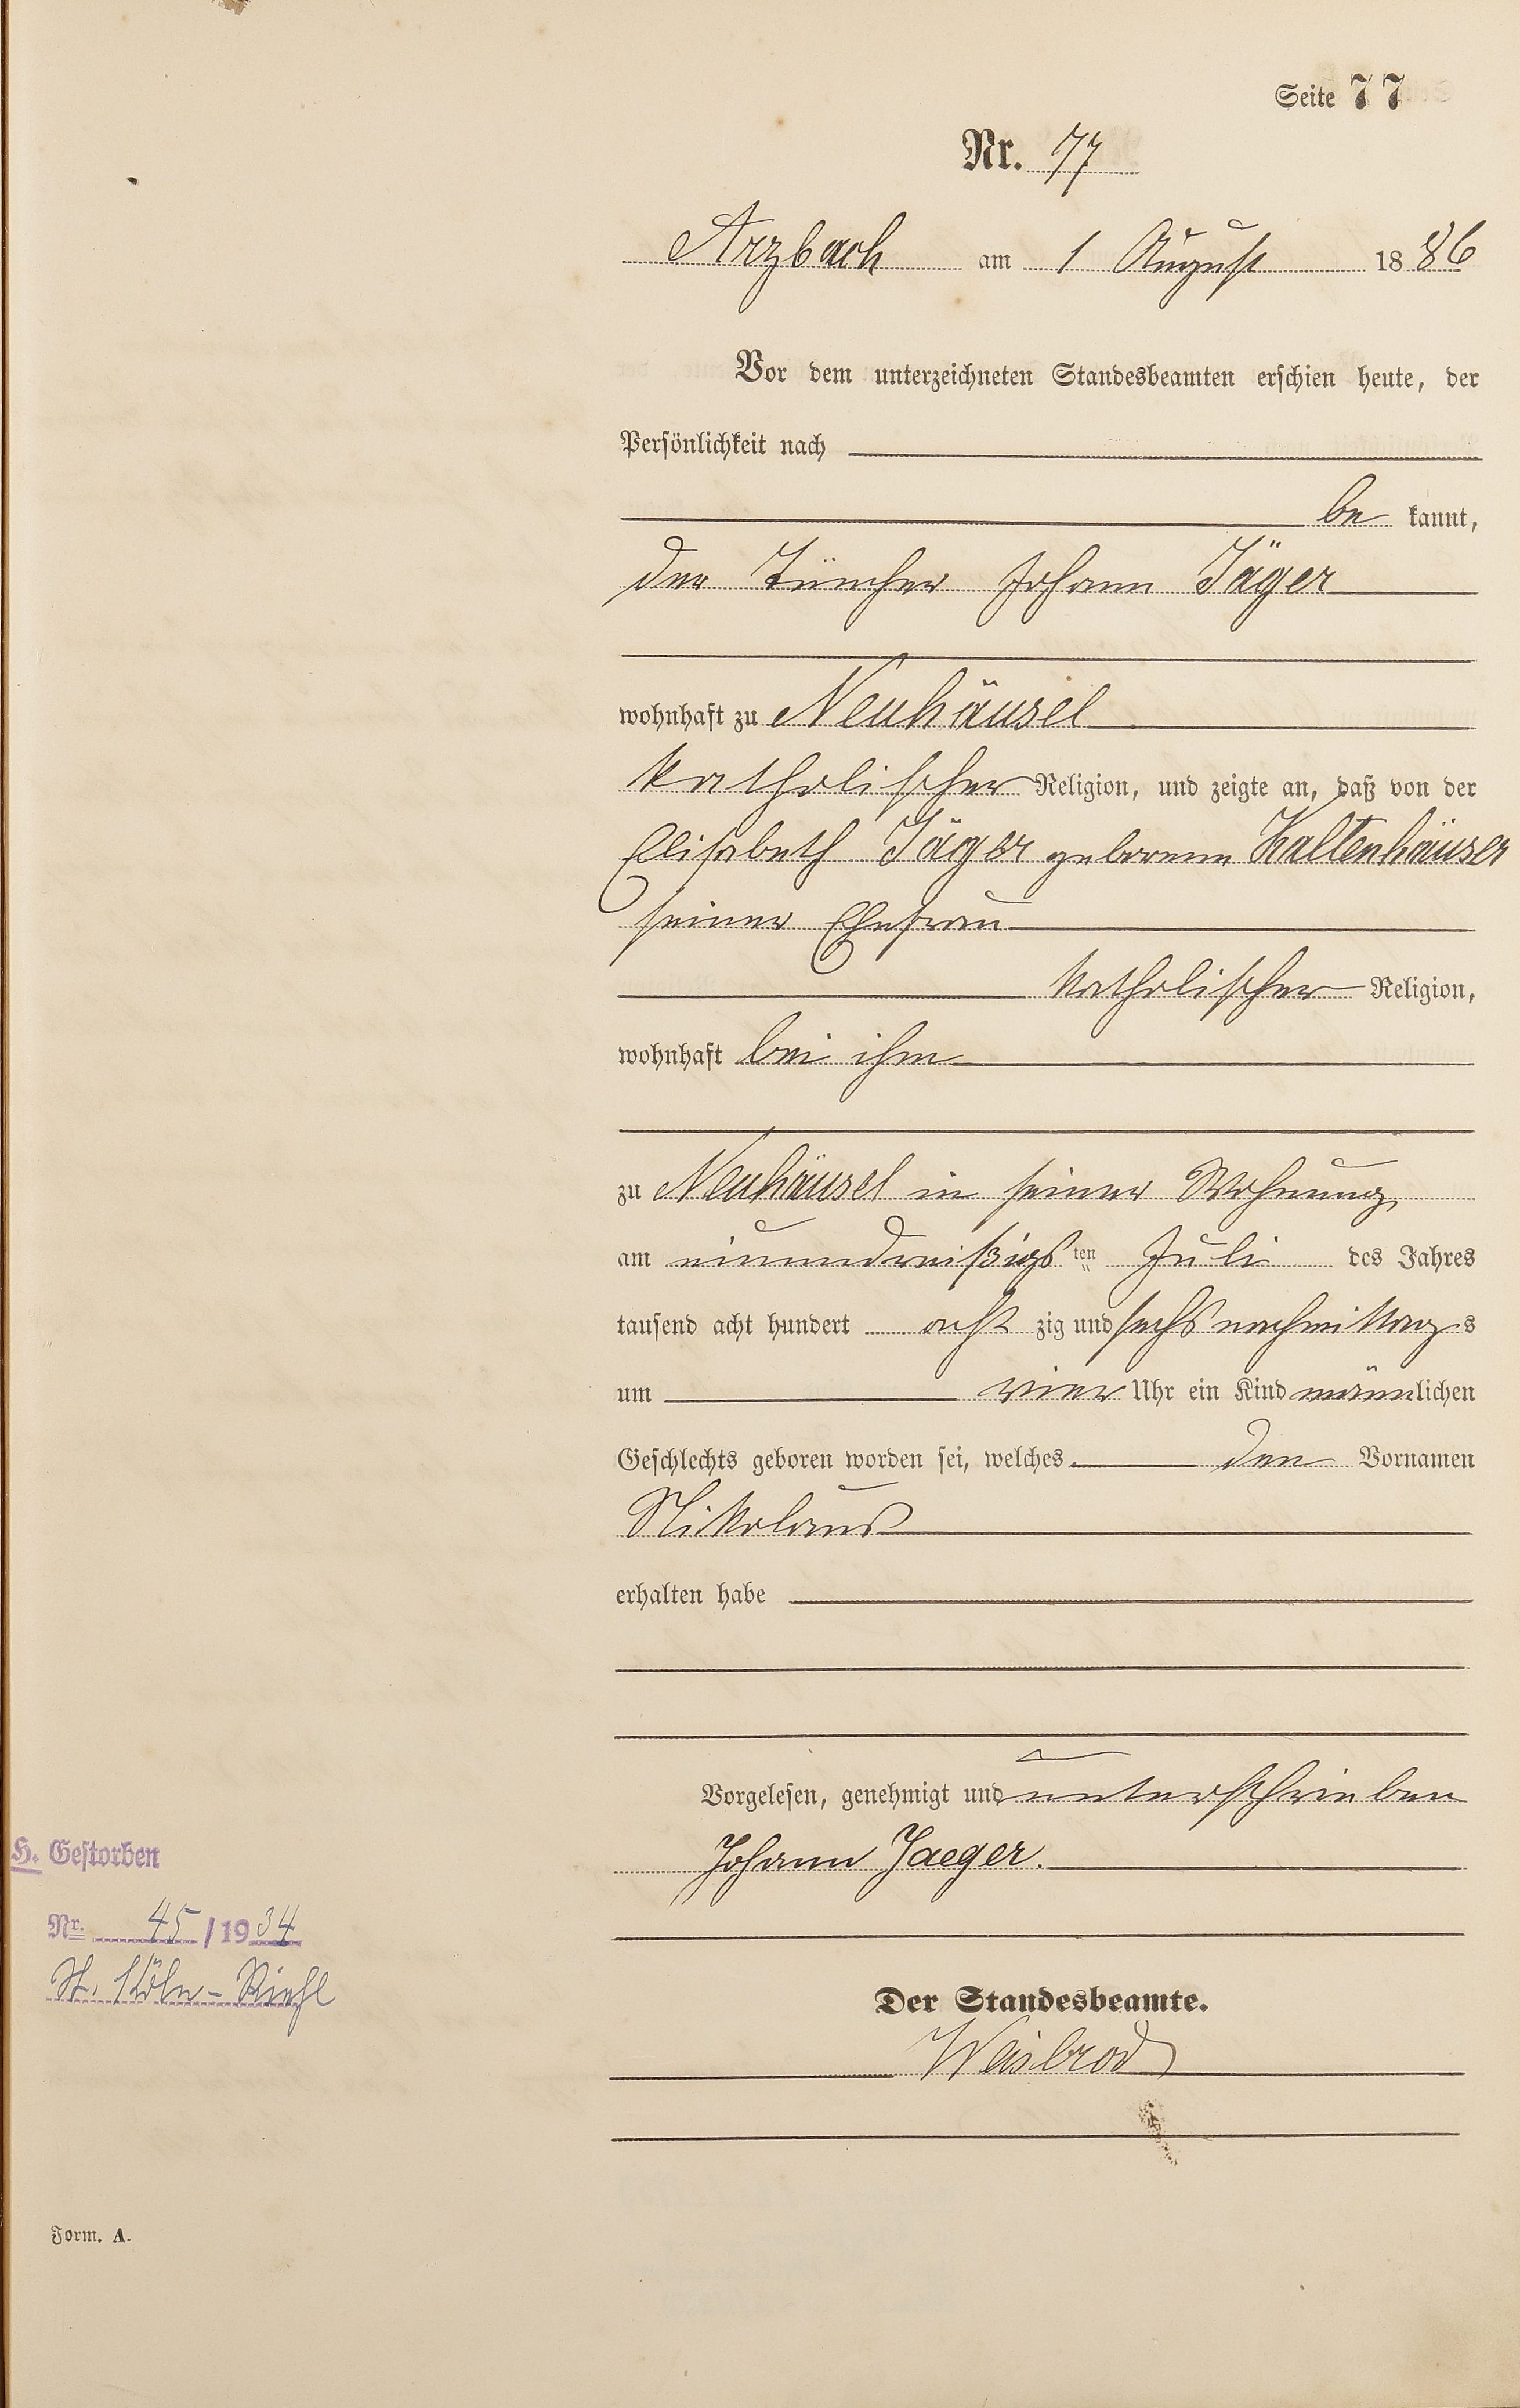 Seite 77
Nr. 77
Arzbach am 1 August 1886
Vor dem unterzeichneten Standesbeamten erschien heute, der
Persönlichkeit nach
be kannt,
der Tüncher Johann Jäger
wohnhaft zu Neuhäusel
katholischer Religion, und zeigte an, daß von der
Elisabeth Jäger geborene Kaltenhäuser
seiner Ehefrau
katholischer Religion,
wohnhaft bei ihm
zu Neuhäusel in seiner Wohnung
am einunddreißigsten Juli des Jahres
tausend acht hundert acht zig und sechs nachmittags
um vier Uhr ein Kind männlichen
Geschlechts geboren worden sei, welches den Vornamen
Nikolaus
erhalten habe
Vorgelesen, genehmigt und unterschrieben
Johann Jaeger.
H. Gestorben
Nr. 45/1934
St. Köln-Riehl
Der Standesbeamte.
Weisbrod
Form. A.